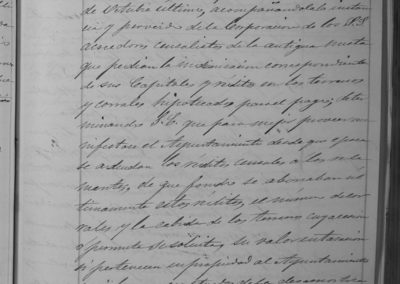 de Octubre último, acompañándole la instan
cia y proveido de la Corporacion de los S.S.
acreedores censalistas de la antigua mesta
que pedian la indivision correspondiente
de sus Capitales y réditos en los terrenos
y corrales hipotecados para el pago; deter
minando S.E. que para mejor proveer ma
nifestara el Ayuntamiento desde que epoca
se adeudan los réditos censales a los recla
mantes, de que fondos se abonaban úl
timamente estos réditos, el número de cor
rales y la cabida de los terrenos cuya cesion
o permuta se solicita, su valor en tasacion
si pertenecen en propiedad al Ayuntamiento
de la desamortiza